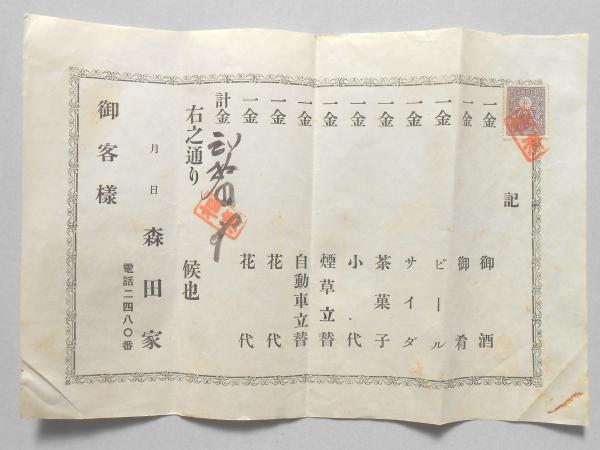 記
一金 御酒
一金 御肴
一金 ビール
一金 サイダ
一金 茶菓子
一金 小代
一金 煙草立替
一金 自動車立替
一金 花代
一金 花代
計金
右之通り候也
月日 森田家
電話二四八〇番
御客様